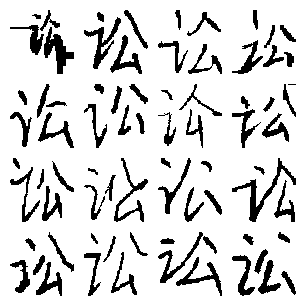 讼讼讼
讼讼讼讼
讼讼讼讼
讼讼讼讼